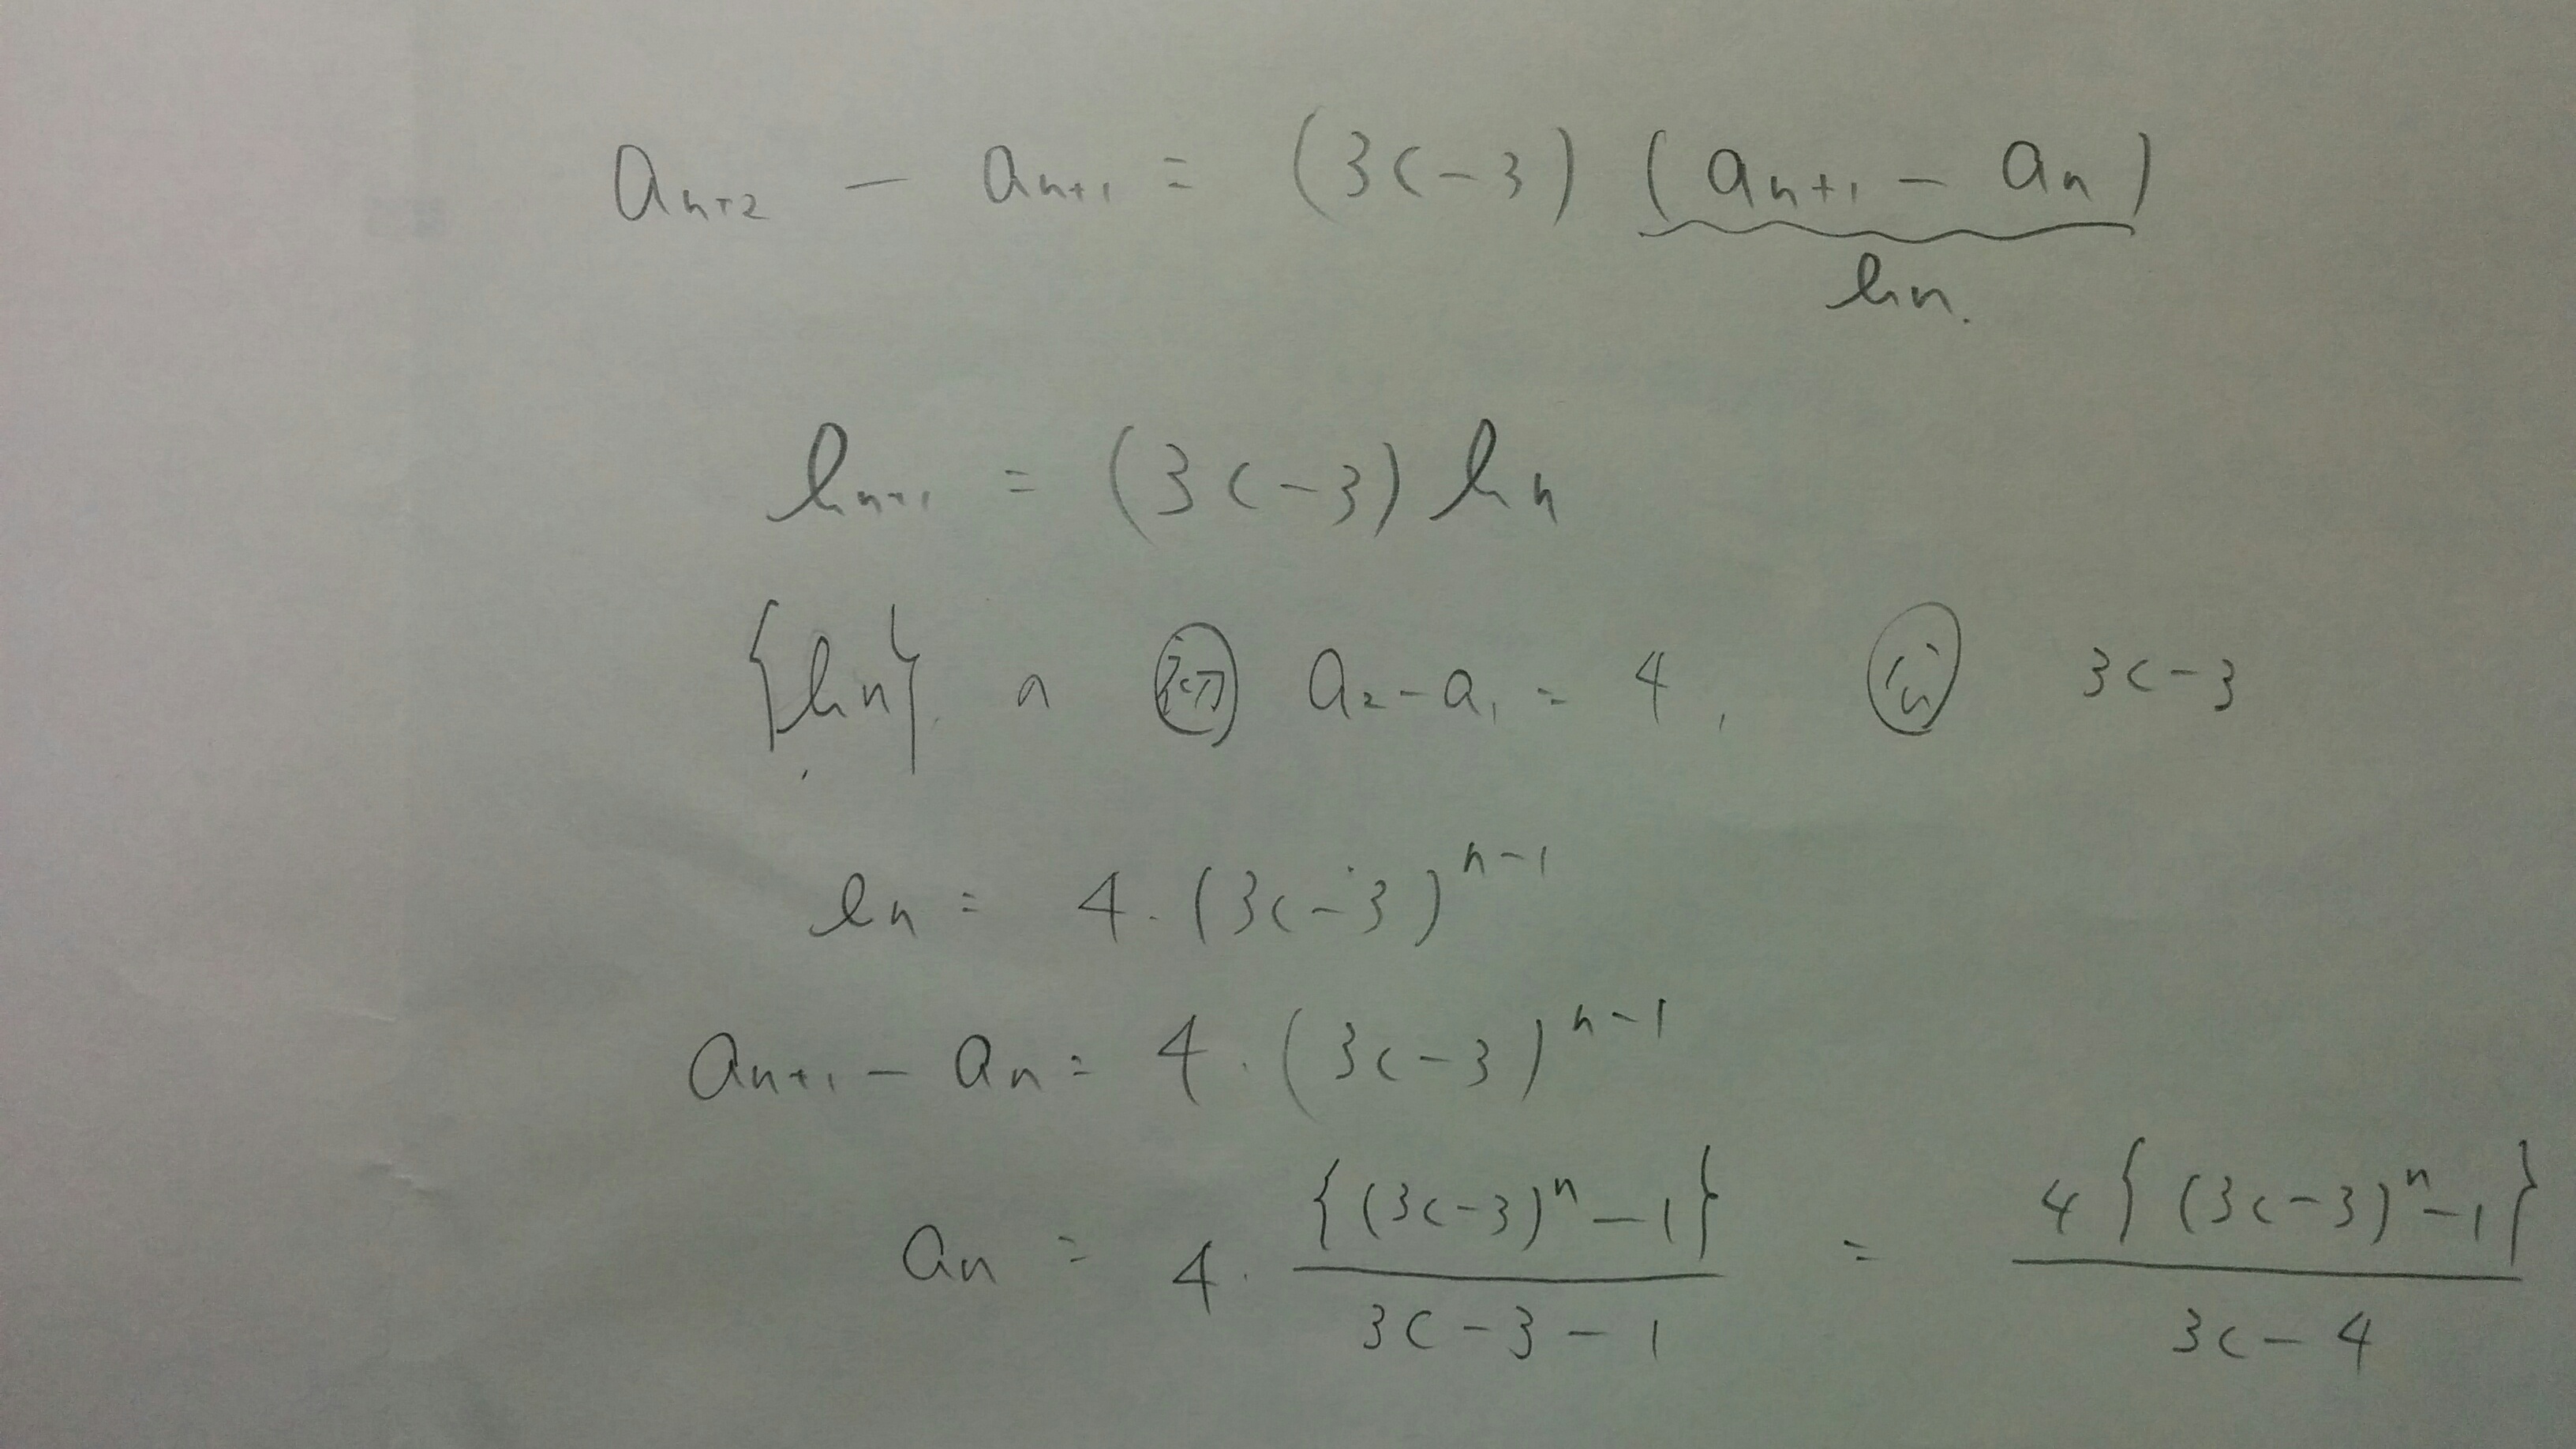 a_{n+2} - a_{n+1} = (3c-3)(a_{n+1} - a_n)
b_n.
b_{n+1} = (3c-3) b_n
{b_n} の 初 a_2 - a_1 = 4, 公 3c-3
b_n = 4・(3c-3)^{n-1}
a_{n+1} - a_n = 4・(3c-3)^{n-1}
a_n = 4・\frac{{(3c-3)^n - 1}}{3c-3-1} = \frac{4{(3c-3)^n - 1}}{3c-4}